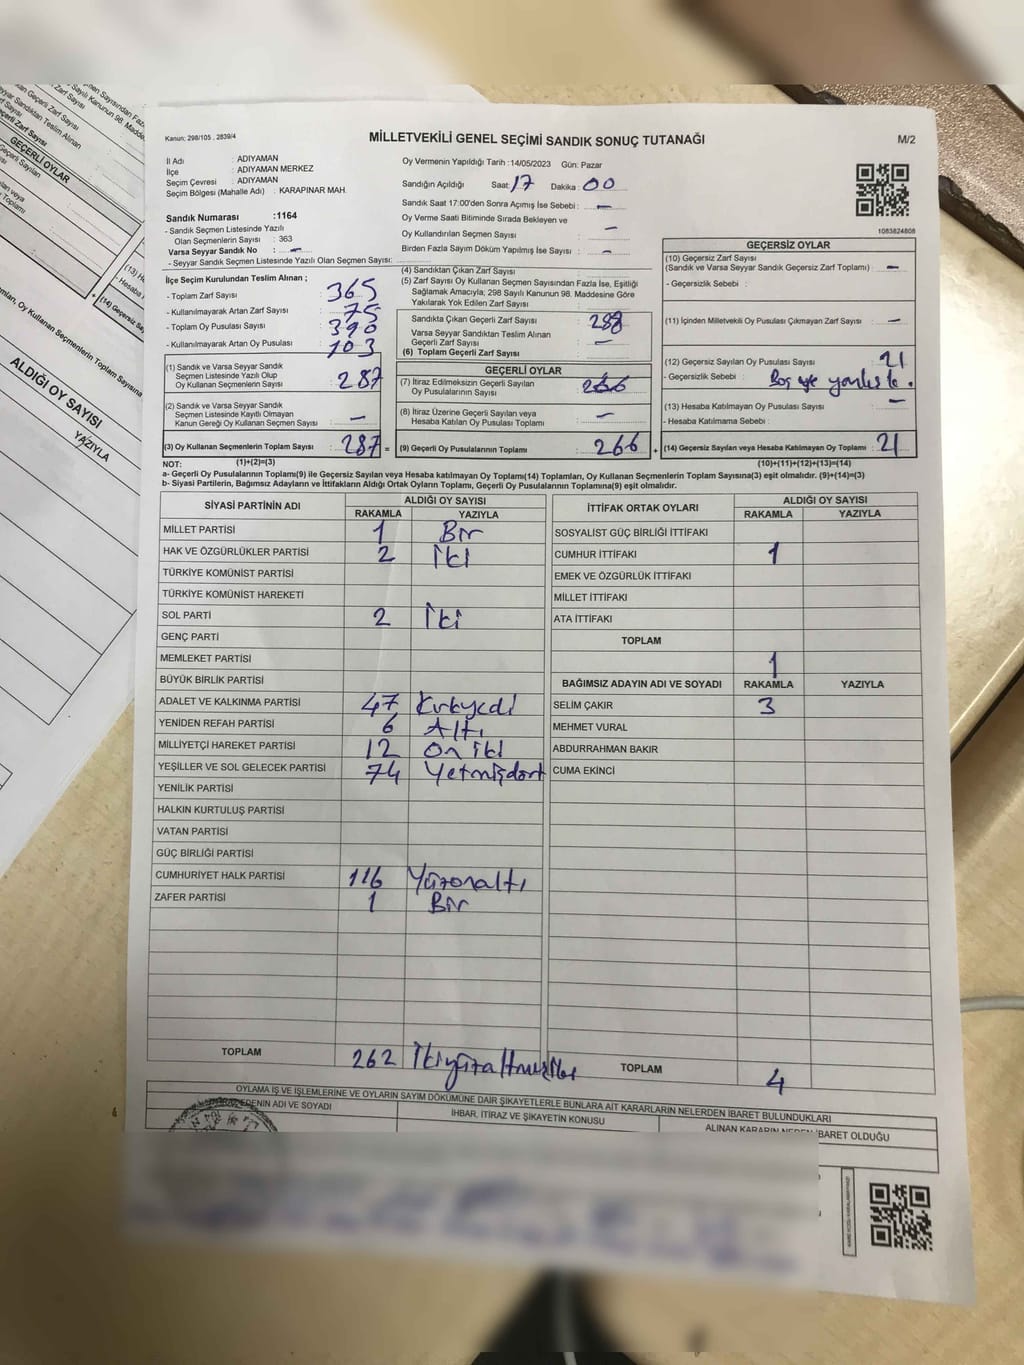 Kanun: 298/105 , 2839/4
MİLLETVEKİLİ GENEL SEÇİMİ SANDIK SONUÇ TUTANAĞI
M/2
İl Adı : ADIYAMAN
İlçe : ADIYAMAN MERKEZ
Seçim Çevresi : ADIYAMAN
Seçim Bölgesi (Mahalle Adı) : KARAPINAR MAH.
Sandık Numarası :1164
- Sandık Seçmen Listesinde Yazılı
Olan Seçmenlerin Sayısı : 363
Varsa Seyyar Sandık No : –
- Seyyar Sandık Seçmen Listesinde Yazılı Olan Seçmen Sayısı:
Oy Vermenin Yapıldığı Tarih :14/05/2023 Gün: Pazar
Sandığın Açıldığı Saat: 17 Dakika : 00
Sandık Saat 17:00'den Sonra Açımış İse Sebebi : –
Oy Verme Saati Bitiminde Sırada Bekleyen ve
Oy Kullandırılan Seçmen Sayısı –
Birden Fazla Sayım Döküm Yapılmış İse Sayısı : –
1083824808
İlçe Seçim Kurulundan Teslim Alınan ;
- Toplam Zarf Sayısı : 365
- Kullanılmayarak Artan Zarf Sayısı : 75
- Toplam Oy Pusulası Sayısı : 390
- Kullanılmayarak Artan Oy Pusulası : 103
(1) Sandık ve Varsa Seyyar Sandık
Seçmen Listesinde Yazılı Olup
Oy Kullanan Seçmenlerin Sayısı : 287
(2) Sandık ve Varsa Seyyar Sandık
Seçmen Listesinde Kayıtlı Olmayan
Kanun Gereği Oy Kullanan Seçmen Sayısı : –
(3) Oy Kullanan Seçmenlerin Toplam Sayısı : 287 =
(4) Sandıktan Çıkan Zarf Sayısı :
(5) Zarf Sayısı Oy Kullanan Seçmen Sayısından Fazla İse, Eşitliği
Sağlamak Amacıyla; 298 Sayılı Kanunun 98. Maddesine Göre
Yakılarak Yok Edilen Zarf Sayısı :
Sandıkta Çıkan Geçerli Zarf Sayısı : 288
Varsa Seyyar Sandıktan Teslim Alınan
Geçerli Zarf Sayısı : –
(6) Toplam Geçerli Zarf Sayısı :
GEÇERLİ OYLAR
(7) İtiraz Edilmeksizin Geçerli Sayılan
Oy Pusulalarının Sayısı : 266
(8) İtiraz Üzerine Geçerli Sayılan veya
Hesaba Katılan Oy Pusulası Toplamı : –
(9) Geçerli Oy Pusulalarının Toplamı : 266 +
GEÇERSİZ OYLAR
(10) Geçersiz Zarf Sayısı
(Sandık ve Varsa Seyyar Sandık Geçersiz Zarf Toplamı) : –
- Geçersizlik Sebebi :
(11) İçinden Milletvekili Oy Pusulası Çıkmayan Zarf Sayısı : –
(12) Geçersiz Sayılan Oy Pusulası Sayısı : 21
- Geçersizlik Sebebi :
(13) Hesaba Katılmayan Oy Pusulası Sayısı : –
- Hesaba Katılmama Sebebi :
(14) Geçersiz Sayılan veya Hesaba Katılmayan Oy Toplamı : 21
NOT: (1)+(2)=(3) (10)+(11)+(12)+(13)=(14)
a- Geçerli Oy Pusulalarının Toplamı(9) ile Geçersiz Sayılan veya Hesaba katılmayan Oy Toplamı(14) Toplamları, Oy Kullanan Seçmenlerin Toplam Sayısına(3) eşit olmalıdır. (9)+(14)=(3)
b- Siyasi Partilerin, Bağımsız Adayların ve İttifakların Aldığı Ortak Oyların Toplamı, Geçerli Oy Pusulalarının Toplamına(9) eşit olmalıdır.
SİYASİ PARTİNİN ADI ALDIĞI OY SAYISI
RAKAMLA YAZIYLA
MİLLET PARTİSİ 1 Bir
HAK VE ÖZGÜRLÜKLER PARTİSİ 2 İki
TÜRKİYE KOMÜNİST PARTİSİ
TÜRKİYE KOMÜNİST HAREKETİ
SOL PARTİ 2 İki
GENÇ PARTİ
MEMLEKET PARTİSİ
BÜYÜK BİRLİK PARTİSİ
ADALET VE KALKINMA PARTİSİ 47 Kırkyedi
YENİDEN REFAH PARTİSİ 6 Altı
MİLLİYETÇİ HAREKET PARTİSİ 12 On iki
YEŞİLLER VE SOL GELECEK PARTİSİ 74 Yetmişdört
YENİLİK PARTİSİ
HALKIN KURTULUŞ PARTİSİ
VATAN PARTİSİ
GÜÇ BİRLİĞİ PARTİSİ
CUMHURİYET HALK PARTİSİ 116 Yüzonaltı
ZAFER PARTİSİ 1 Bir
TOPLAM 262 İkiyüzaltmışiki
İTTİFAK ORTAK OYLARI ALDIĞI OY SAYISI
RAKAMLA YAZIYLA
SOSYALİST GÜÇ BİRLİĞİ İTTİFAKI
CUMHUR İTTİFAKI 1
EMEK VE ÖZGÜRLÜK İTTİFAKI
MİLLET İTTİFAKI
ATA İTTİFAKI
TOPLAM
1
BAĞIMSIZ ADAYIN ADI VE SOYADI RAKAMLA YAZIYLA
SELİM ÇAKIR 3
MEHMET VURAL
ABDURRAHMAN BAKIR
CUMA EKİNCİ
TOPLAM 4
OYLAMA İŞ VE İŞLEMLERİNE VE OYLARIN SAYIM DÖKÜMÜNE DAİR ŞİKAYETLERLE BUNLARA AİT KARARLARIN NELERDEN İBARET BULUNDUKLARI
EDENİN ADI VE SOYADI
İHBAR, İTİRAZ VE ŞİKAYETİN KONUSU
ALINAN KARARIN NEDEN İBARET OLDUĞU
GEÇERLİ OYLAR
ALDIĞI OY SAYISI
YAZIYLA